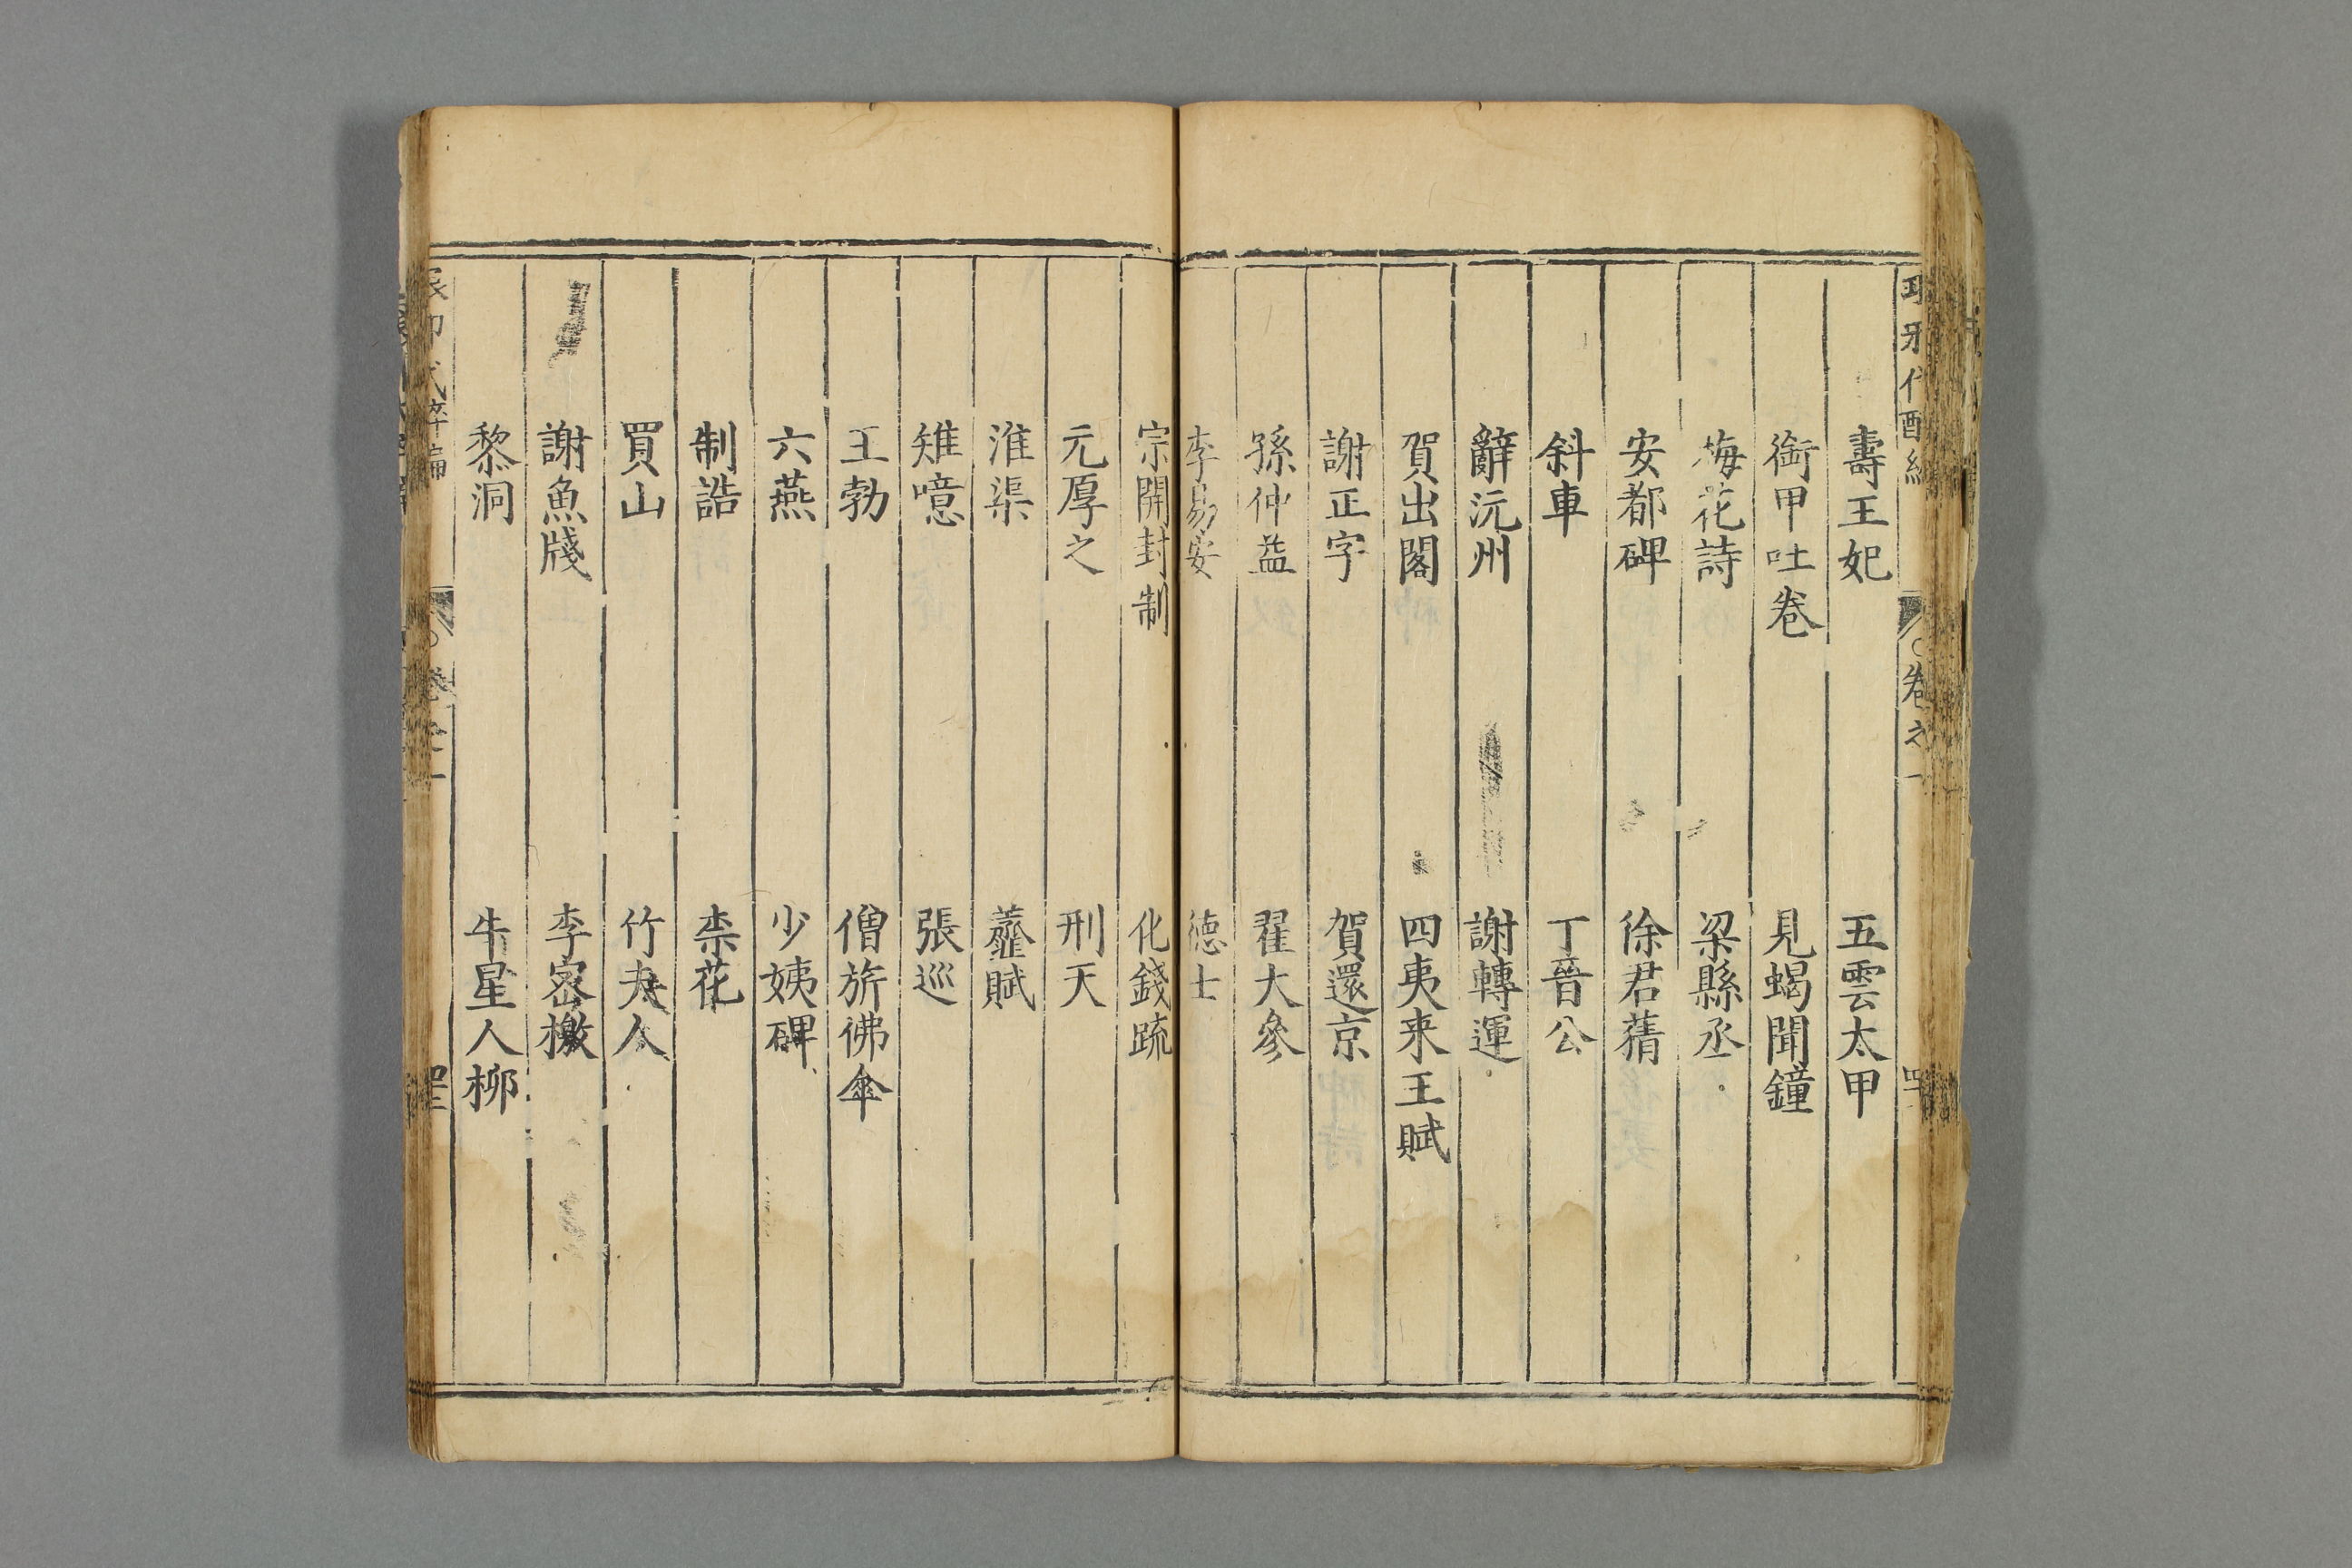 壽王妃 五雲太甲
銜甲吐卷 見蝎聞鐘
梅花詩 梁縣丞
安都碑 徐君蒨
斜車 丁晉公
辭沅州 謝轉運
賀出閣 四夷来王賦
謝正字 賀還京
孫仲益 翟大參
李易安 德士
宗開封制 化錢疏
元厚之 刑天
淮渠 虀賦
雉噫 張巡
王勃 僧旂佛傘
六燕 少姨碑
制誥 柰花
買山 竹夫人
謝魚牋 李密檄
黎洞 牛星人柳
卷之一